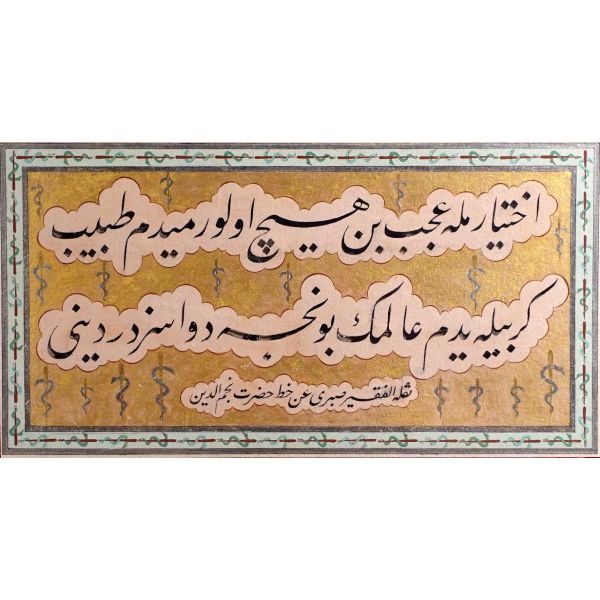 اختیارمله عجب بن هیچ اولورمیدم طبیب
کر بیله یدم عالمك بونجه دواسز دردینی
نقله الفقیر صبری عن خط حضرت نجم الدین